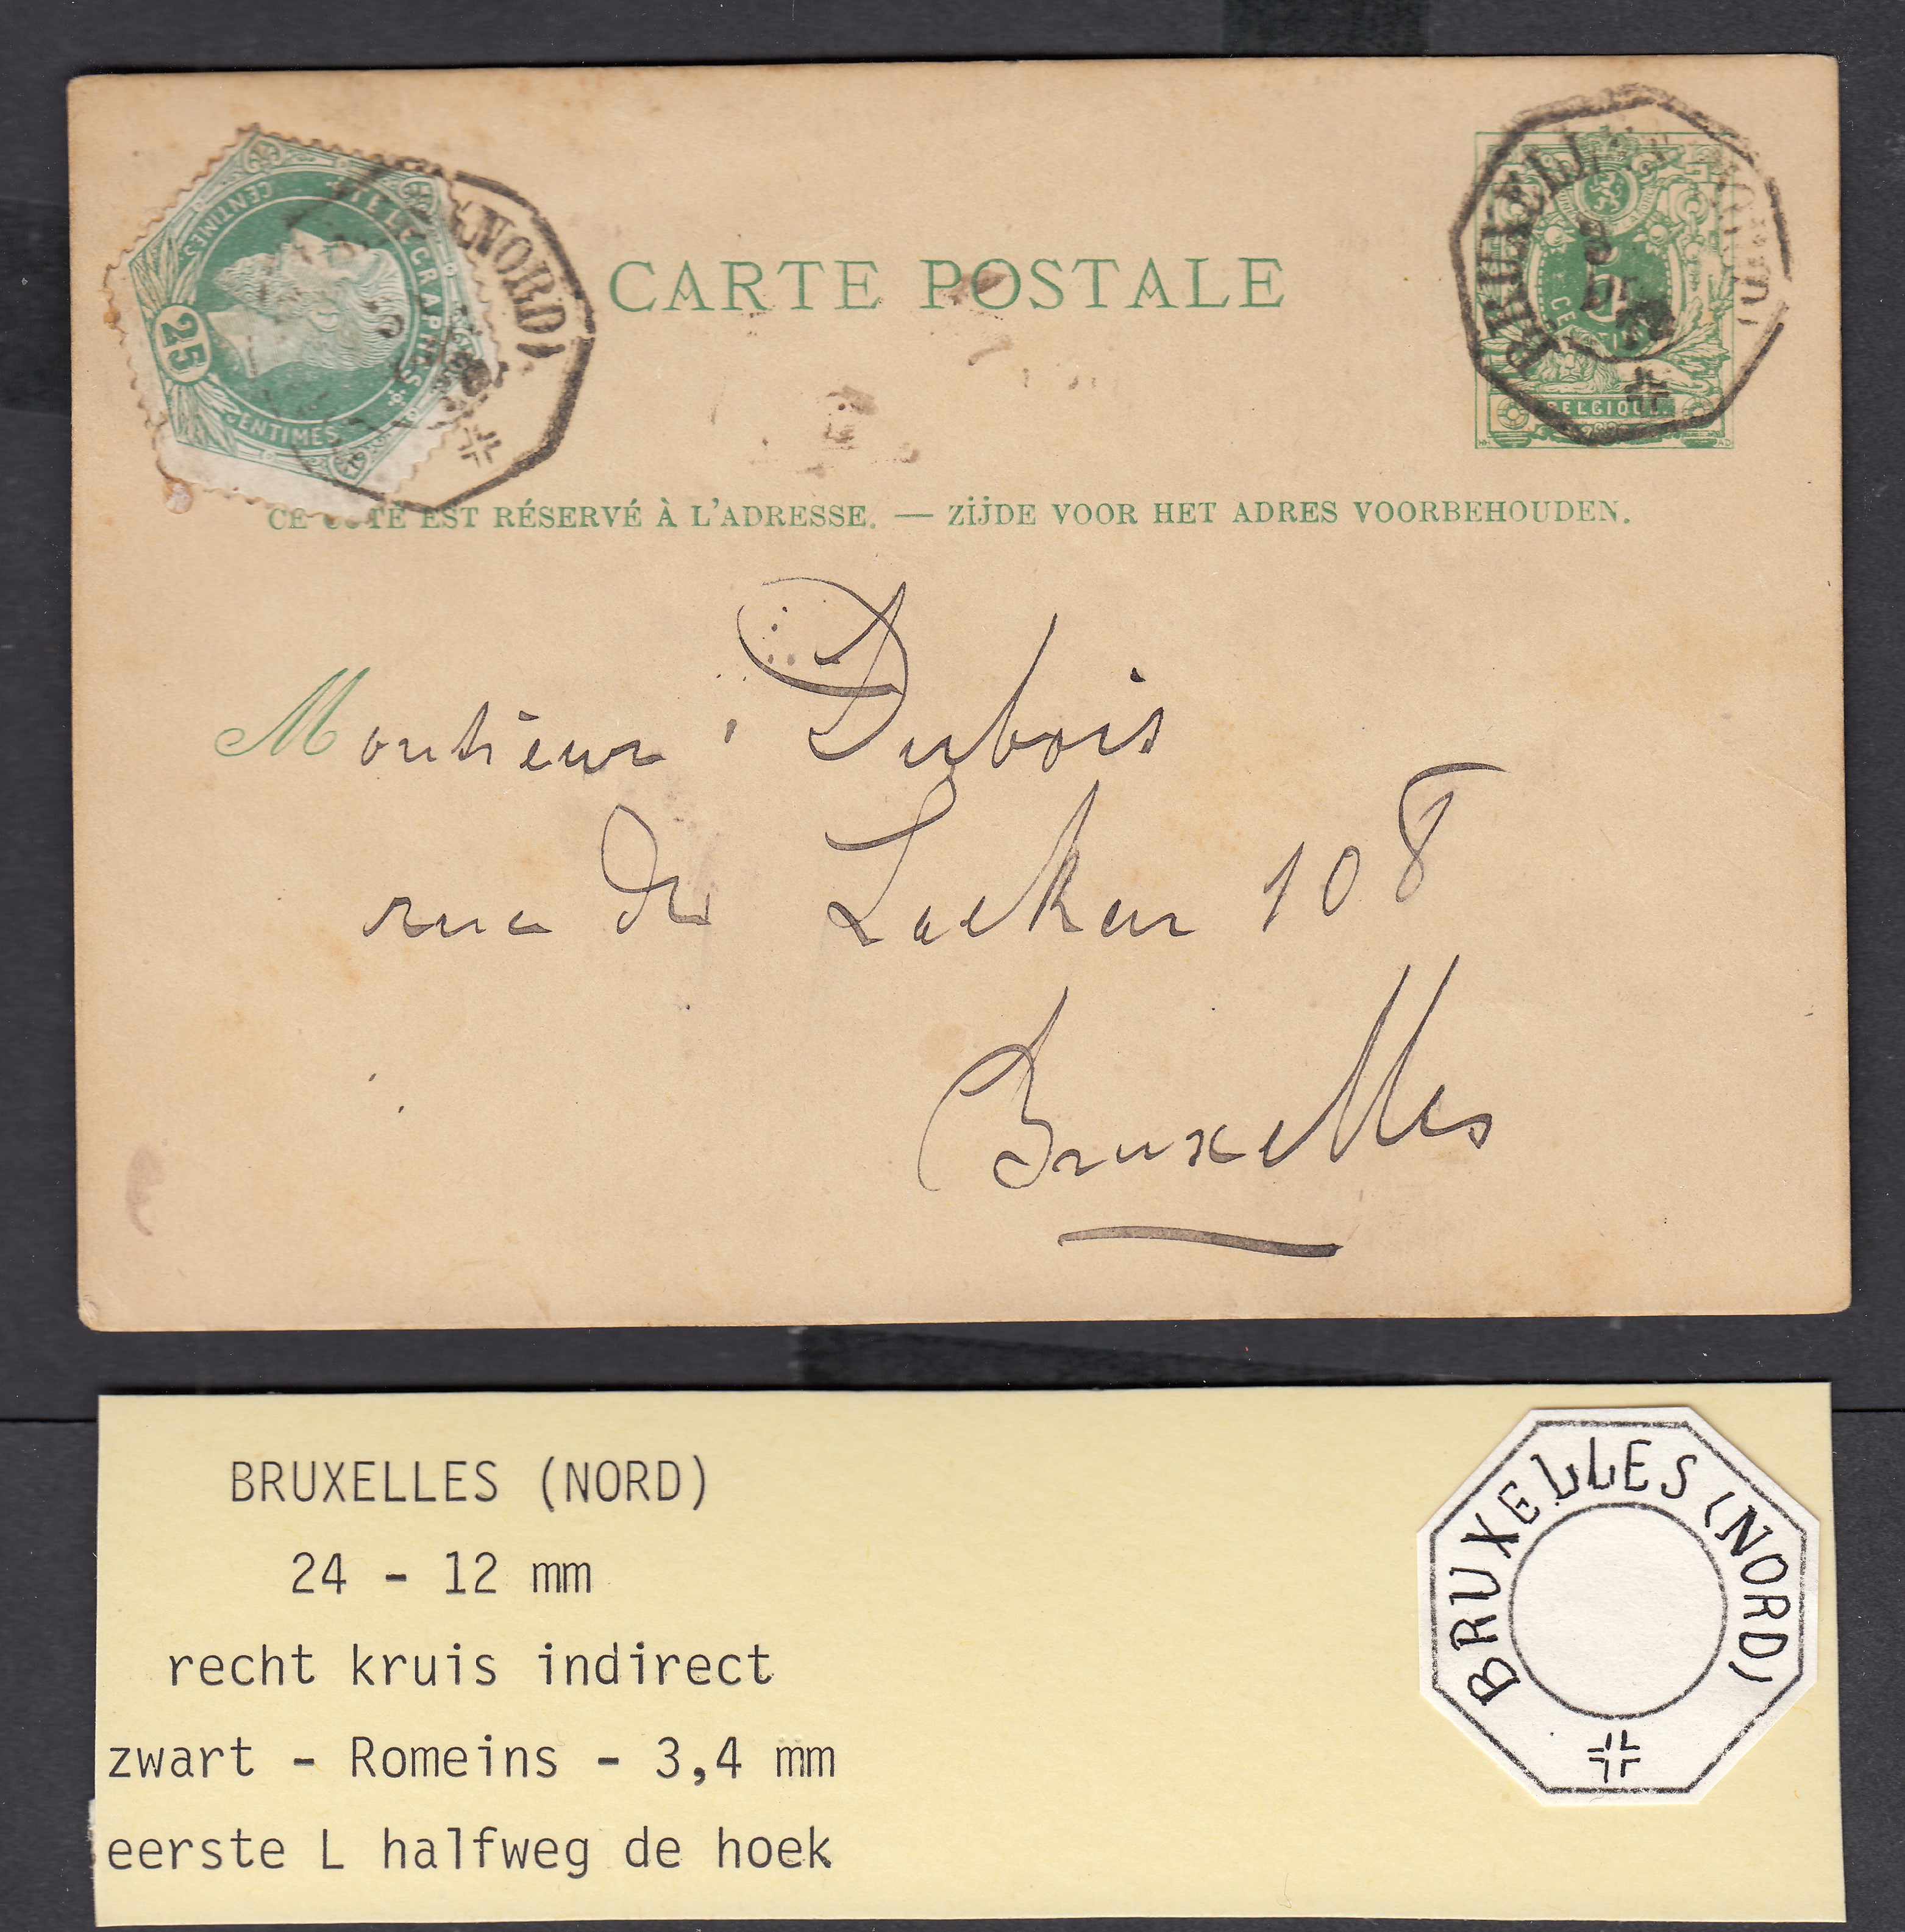 CENTIMES
TÉLÉGRAPHES
25
CENTIMES
(NORD)
CARTE POSTALE
BRUXELLES (NORD)
5
BELGIQUE
CE COTÉ EST RÉSERVÉ À L'ADRESSE. — ZIJDE VOOR HET ADRES VOORBEHOUDEN.
Monsieur Dubois
rue de Laeken 108
Bruxelles
BRUXELLES (NORD)
24 - 12 mm
recht kruis indirect
zwart - Romeins - 3,4 mm
eerste L halfweg de hoek
BRUXELLES (NORD)